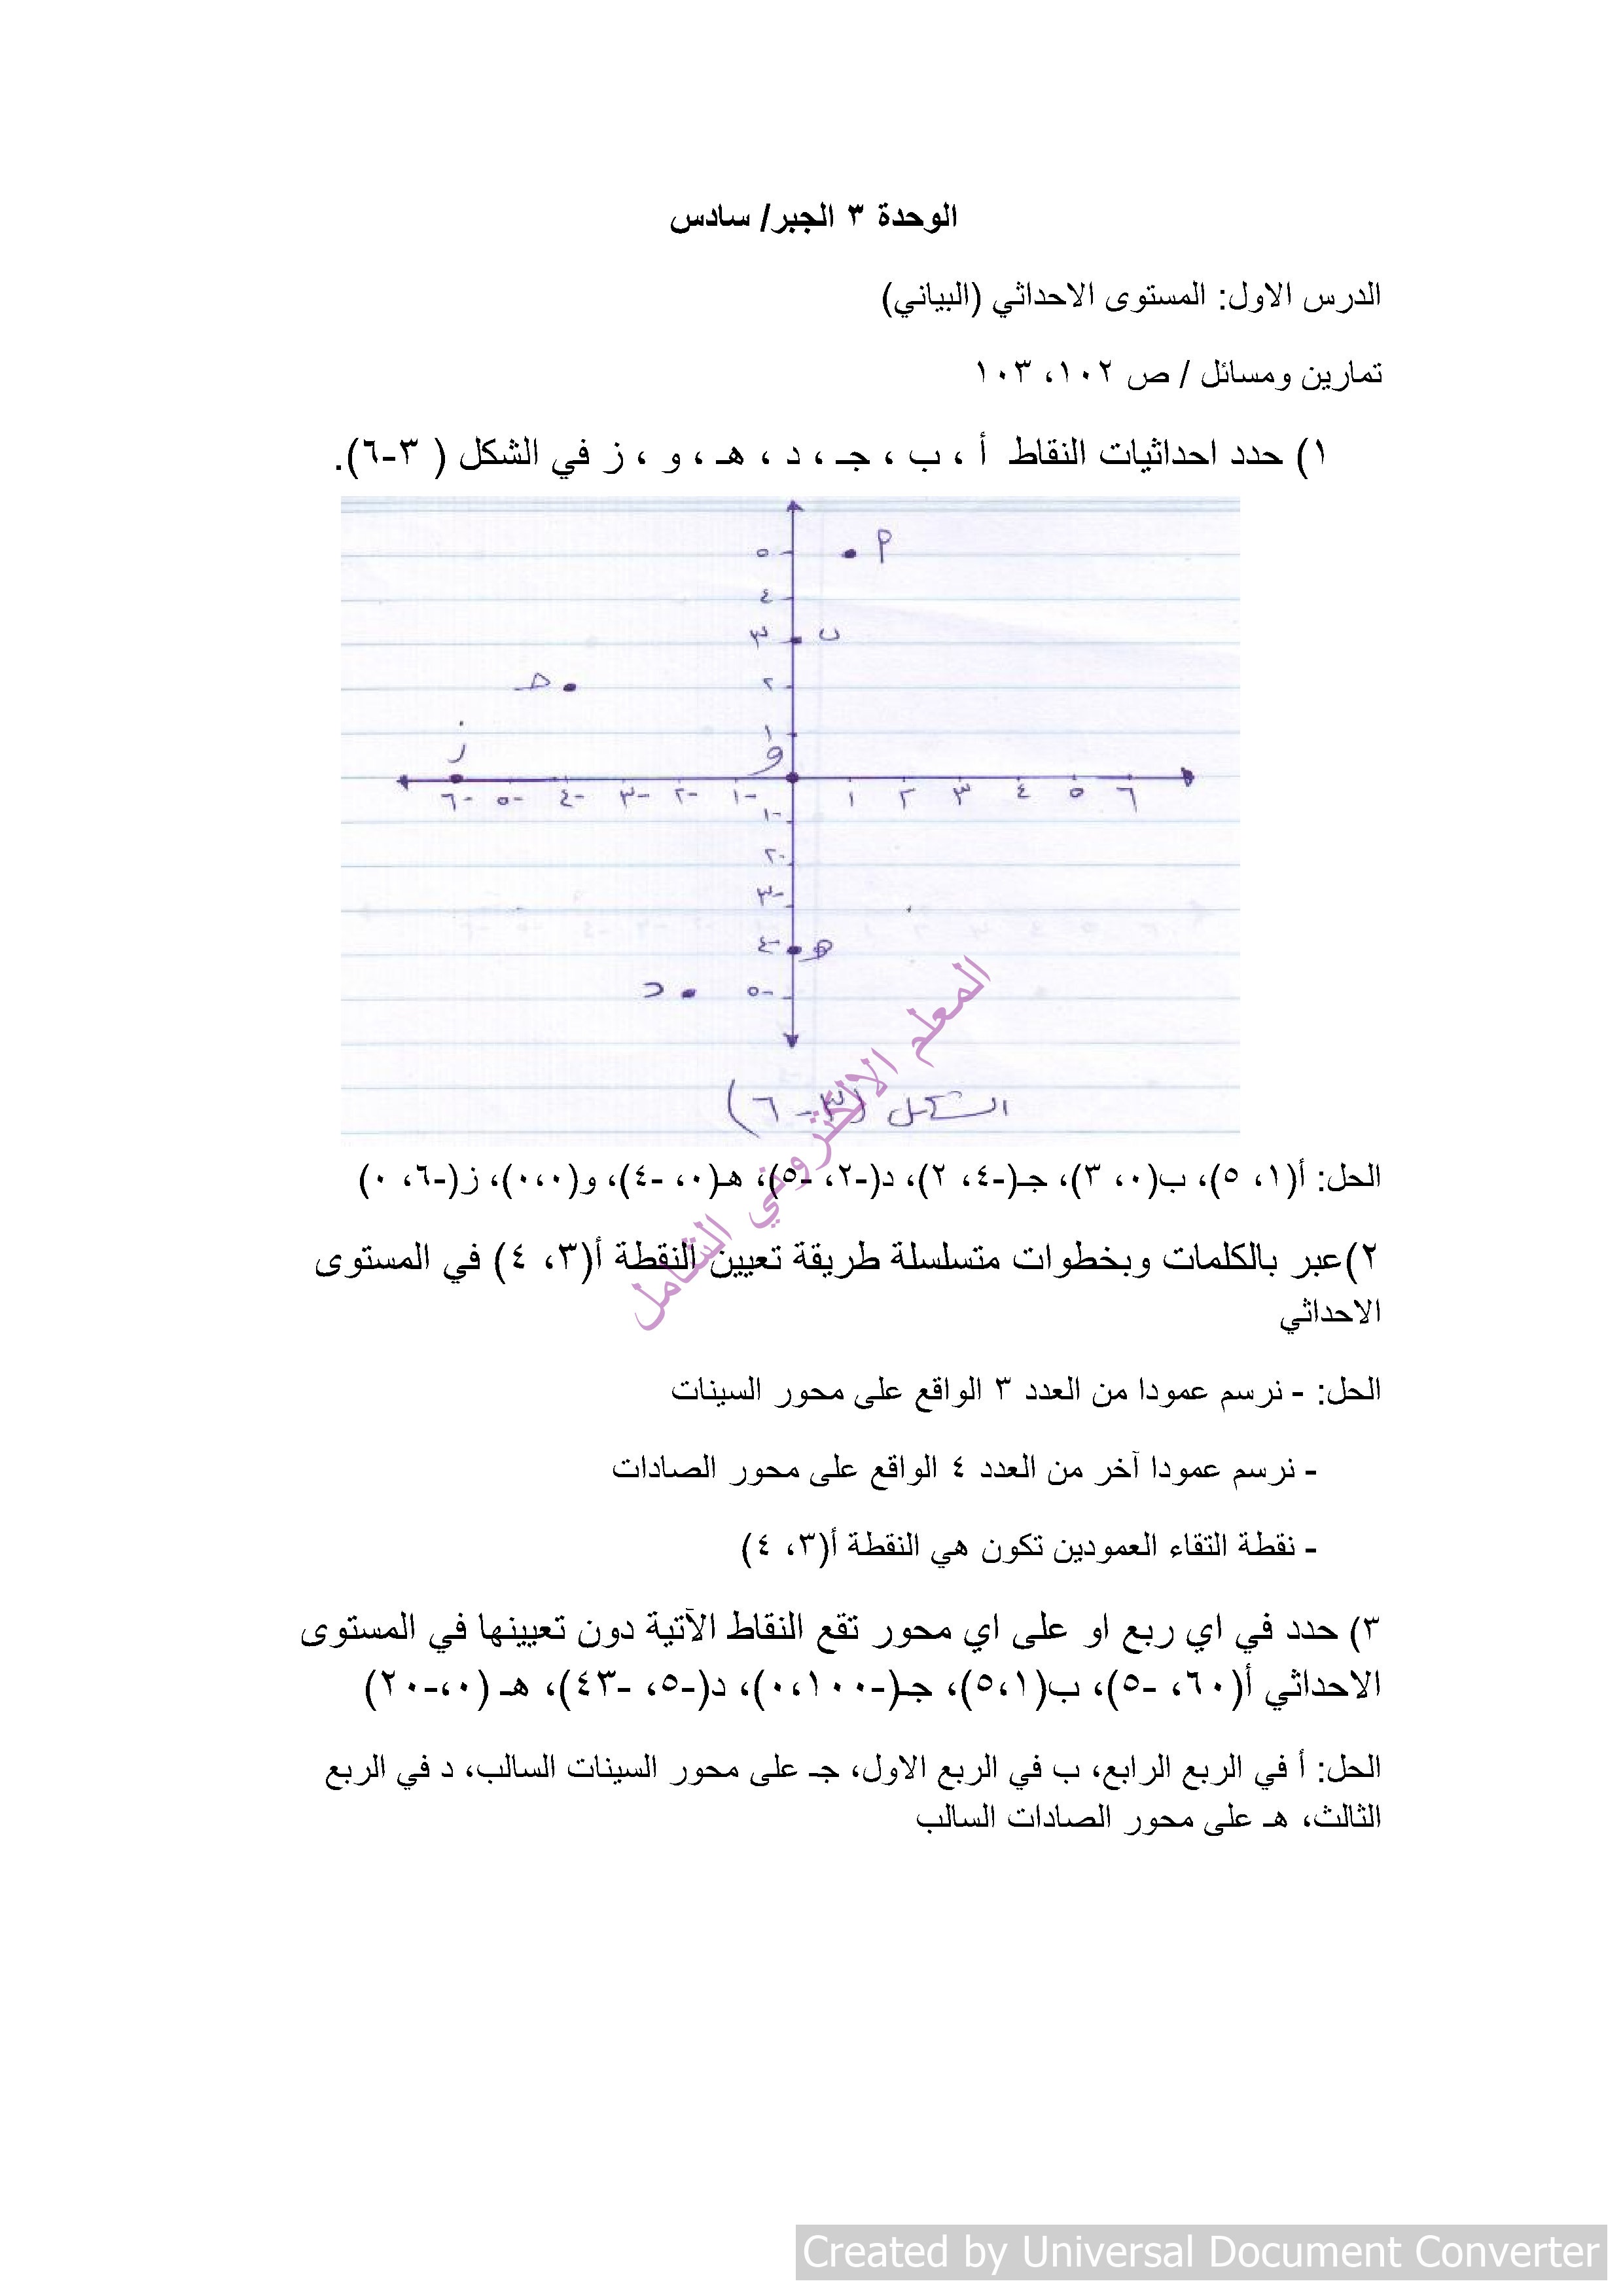 الوحدة ٣ الجبر/ سادس
الدرس الاول: المستوى الاحداثي (البياني)
تمارين ومسائل / ص ١٠٢، ١٠٣
١) حدد احداثيات النقاط أ ، ب ، جـ ، د ، هـ ، و ، ز في الشكل ( ٣-٦).
٥ أ
٤
٣ ب
جـ ٢
١
ز و
-٦ -٥ -٤ -٣ -٢ -١ ١ ٢ ٣ ٤ ٥ ٦
-١
-٢
-٣
-٤ هـ
د -٥
الشكل (٣-٦)
المعلم الالكتروني الشامل
الحل: أ(١، ٥)، ب(٠، ٣)، جـ(-٤، ٢)، د(-٢، -٥)، هـ(٠، -٤)، و(٠،٠)، ز(-٦، ٠)
٢)عبر بالكلمات وبخطوات متسلسلة طريقة تعيين النقطة أ(٣، ٤) في المستوى
الاحداثي
الحل: - نرسم عمودا من العدد ٣ الواقع على محور السينات
- نرسم عمودا آخر من العدد ٤ الواقع على محور الصادات
- نقطة التقاء العمودين تكون هي النقطة أ(٣، ٤)
٣) حدد في اي ربع او على اي محور تقع النقاط الآتية دون تعيينها في المستوى
الاحداثي أ(٦٠، -٥)، ب(٥،١)، جـ(-٠،١٠٠)، د(-٥، -٤٣)، هـ (٠،-٢٠)
الحل: أ في الربع الرابع، ب في الربع الاول، جـ على محور السينات السالب، د في الربع
الثالث، هـ على محور الصادات السالب
Created by Universal Document Converter